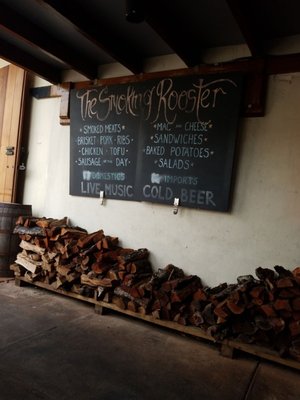 The Smoking Rooster
SMOKED MEATS
BRISKET PORK RIBS
CHICKEN TOFU
SAUSAGE OF THE DAY
MAC AND CHEESE
SANDWICHES
BAKED POTATOES
SALADS
DOMESTICS
IMPORTS
LIVE MUSIC COLD BEER